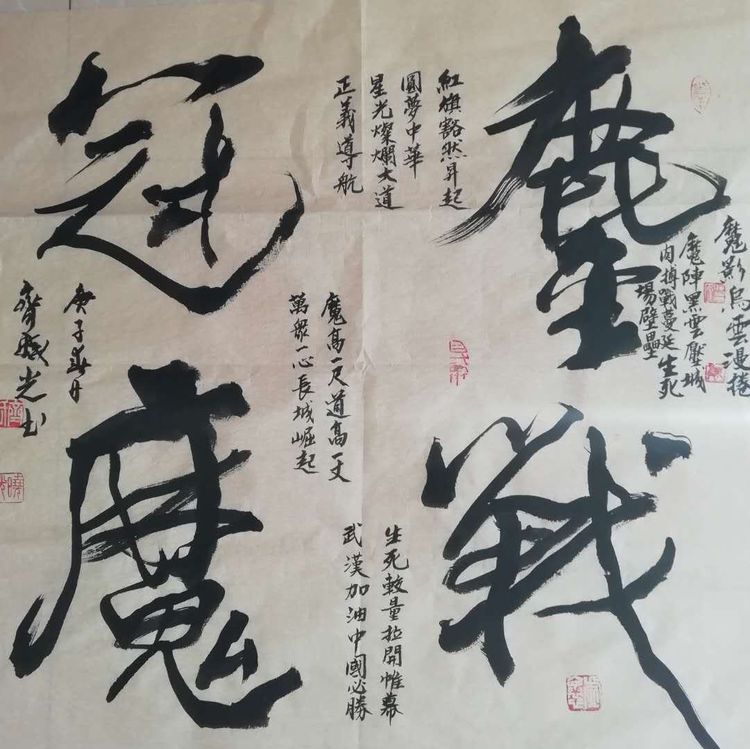 鏖戰
冠魔
魔影烏雲漫捲
魔陣黑雲壓城
肉搏戰蔓延生死
場壁壘
紅旗豁然昇起
圓夢中華
星光燦爛大道
正義導航
魔高一尺道高一丈
萬衆一心長城崛起
生死較量拉開帷幕
武漢加油中國必勝
庚子春月
齊曉光书